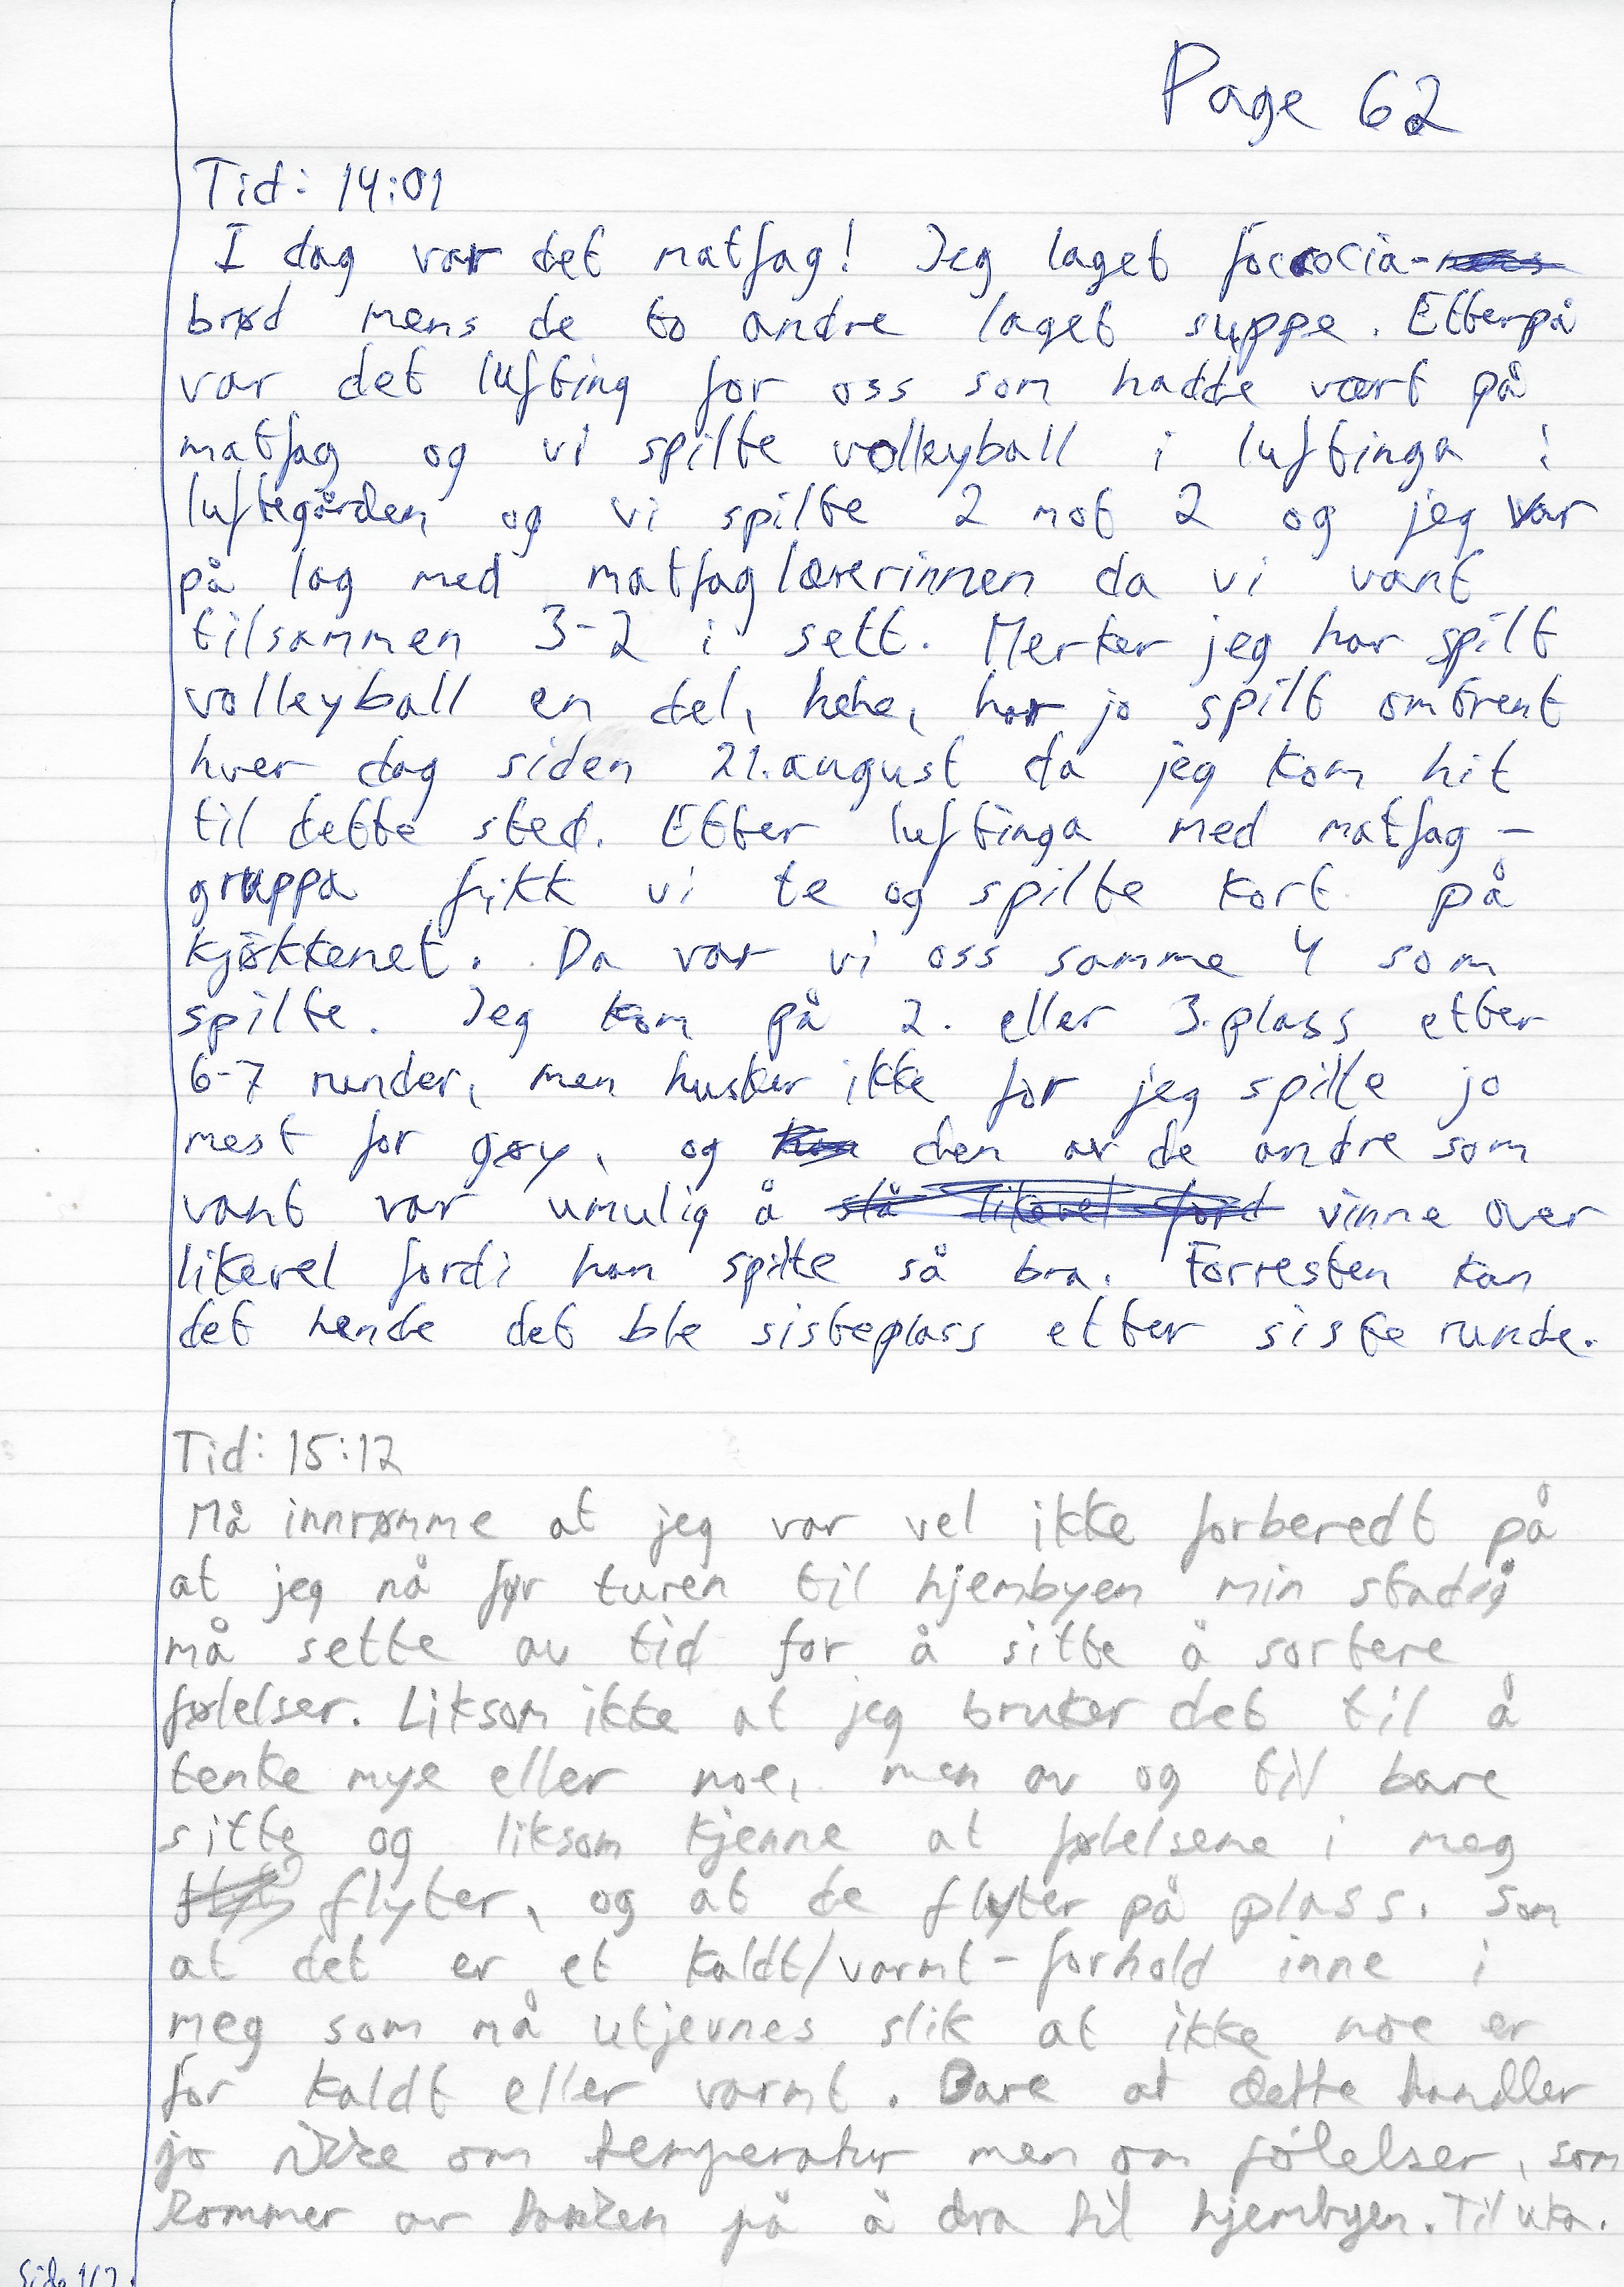 Page 62
Tid: 14:01
I dag var det matfag! Jeg laget foccocia-
brød mens de to andre laget suppe. Etterpå
var det lufting for oss som hadde vært på
matfag og vi spilte volleyball i luftinga i
luftegården og vi spilte 2 mot 2 og jeg var
på lag med matfaglærerinnen da vi vant
tilsammen 3-2 i sett. Merker jeg har spilt
volleyball en del, hehe, har jo spilt omtrent
hver dag siden 21.august da jeg kom hit
til dette sted. Etter luftinga med matfag-
gruppa fikk vi te og spilte kort på
kjøkkenet. Da var vi oss samme 4 som
spilte. Jeg kom på 2. eller 3.plass etter
6-7 runder, men husker ikke for jeg spilte jo
mest for gøy, og den av de andre som
vant var umulig å slå likevel ford vinne over
likevel fordi han spilte så bra. Forresten kan
det hende det ble sisteplass etter siste runde.
Tid: 15:12
Må innrømme at jeg var vel ikke forberedt på
at jeg nå før turen til hjembyen min stadig
må sette av tid for å sitte å sortere
følelser. Liksom ikke at jeg bruker det til å
tenke mye eller noe, men av og til bare
sitte og liksom kjenne at følelsene i meg
flyter, og at de flyter på plass. Som
at det er et kaldt/varmt-forhold inne i
meg som må utjevnes slik at ikke noe er
for kaldt eller varmt. Bare at dette handler
jo ikke om temperatur men om følelser, som
kommer av tanken på å dra til hjembyen. Til uka.
Side 1/2.